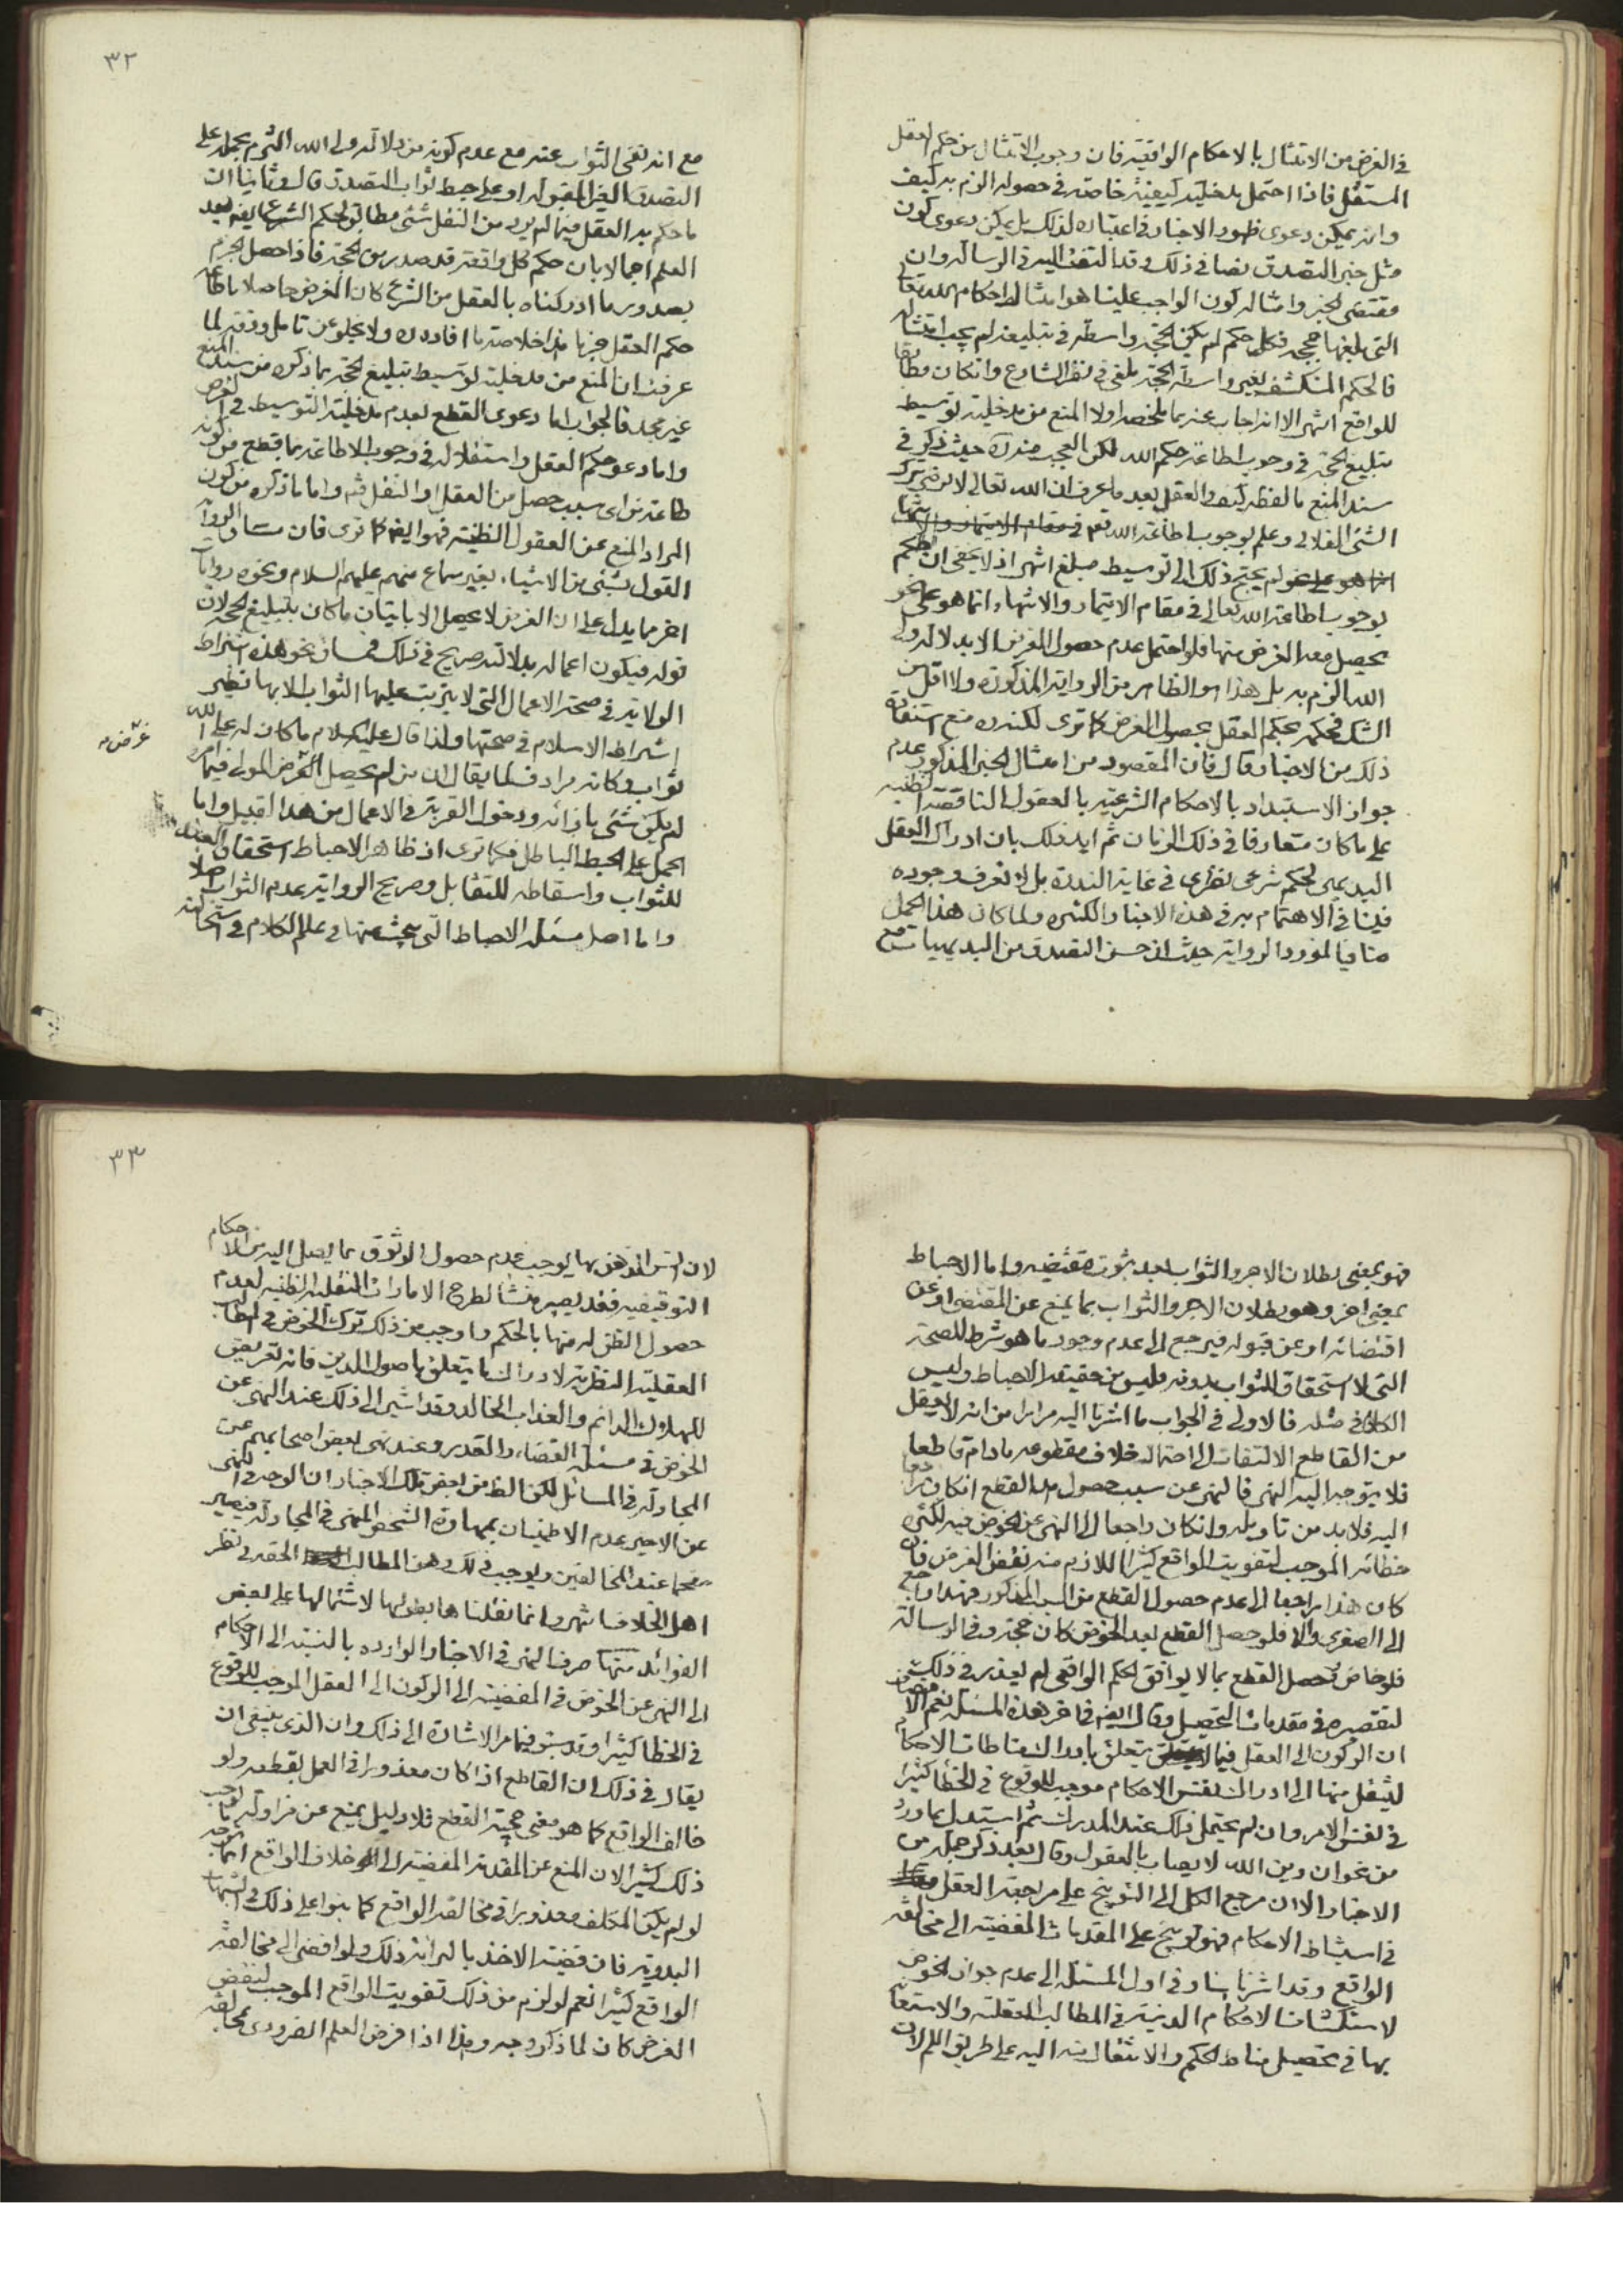 في الغرض من الامتثال بالاحكام الواقعية فان وجوب الامتثال من حكم العقل
المستقل فاذا احتمل مدخلية كيفية خاصة في حصوله الزم به كيف
وانه يمكن دعوى ظهور الاخبار في اعتباره لذلك بل يمكن دعوى كون
مثل خبر التصدق نصا في ذلك وقد التفت اليه في الرسالة وان
مقتضى الخبر وامثاله كون الواجب علينا هو امتثال احكام الله تعالى
التي بلغها حججه فكل حكم لم يكن الحجة واسطة في تبليغه لم يجب امتثاله
فالحكم المنكشف بغير واسطة الحجة ملغى في نظر الشارع وان كان مطابقا
للواقع انتهى الا انه اجاب عنه بما ملخصه اولا المنع من مدخلية توسيط
تبليغ الحجة في وجوب اطاعة حكم الله لكن العجب منه ره حيث ذكر في
سند المنع ما لفظه كيف والعقل بعد ما عرف ان الله تعالى لا يرضى بترك
الشئ الفلاني وعلم بوجوب اطاعة الله تعالى
لم يحتج ذلك الى توسيط مبلغ انتهى اذ لا يخفى ان الحكم
بوجوب اطاعة الله تعالى في مقام الايتمار والانتهاء انما هو على نحو
يحصل معه الغرض منها فلو احتمل عدم حصول الغرض الا بدلالة ولي
الله الزم به بل هذا هو الظاهر من الرواية المذكورة ولا اقل من
الشك فحكمه بحكم العقل بحصول الغرض كما ترى لكنه ره منع استفادة
ذلك من الاخبار وقال فان المقصود من امثال الخبر المذكور عدم
جواز الاستبداد بالاحكام الشرعية بالعقول الناقصة الظنية
على ما كان متعارفا في ذلك الزمان ثم ايد ذلك بان ادراك العقل
البديهي لحكم شرعي نظري في غاية الندرة بل لا نعرف وجوده
فينافي الاهتمام به في هذه الاخبار الكثيرة ولما كان هذا الحمل
منافيا لمورد الرواية حيث ان حسن التصدق من البديهيات مع
٣٢
مع انه نفى الثواب عنه مع عدم كونه من دلالة ولي الله التزم بحمله على
التصدق الغير المقبول او على حبط ثواب التصدق قال وثانيا ان
ما حكم به العقل فيما لم يرد من النقل شئ مطابق لحكم الشرع
العلم اجمالا بان حكم كل واقعة قد صدر من الحجة فاذا حصل الجزم
بصدور ما ادركناه بالعقل من الشرع كان الغرض حاصلا باطاعة
حكم العقل جزما هذا خلاصة ما افاده ره ولا يخلو عن تامل وذلك لما
عرفت ان المنع من مدخلية توسيط تبليغ الحجة بما ذكره من سند المنع
غير مجد فالجواب اما دعوى القطع بعدم مدخلية التوسيط في الغرض
واما دعوى حكم العقل واستقلاله في وجوب الاطاعة بما قطع من كونه
طاعة من اي سبب حصل من العقل او النقل فتم واما ما ذكره من كون
المراد المنع عن العقول الظنية فهو ايضا كما ترى فان مساواة الرواية
القول بشئ من الاشياء بغير سماع منهم عليهم السلام ونحوه روايات
اخر مما يدل على ان الغرض لا يحصل الا باتيان ما كان بتبليغ الحجة لان
قوله فيكون اعماله بدلالته صريح في ذلك فمساق نحو هذه اشتراط
الولاية في صحة الاعمال التي لا يترتب عليها الثواب الا بها نظير
اشتراط الاسلام في صحتها ولذا قال عليه السلام ما كان له على الله
ثواب وكانه مرادف لما يقال ان من لم يحصل الغرض المولى فيما امره
لم يكن شئ بازائه ودخول القربة في الاعمال من هذا القبيل واما
الحمل على الحبط الباطل فكما ترى اذ ظاهر الاحباط استحقاق العبد
للثواب واسقاطه للتقابل وصريح الرواية عدم الثواب اصلا
واما اصل مسئلة الاحباط التي يبحث عنها في علم الكلام في استحالته
غرّض مه
فهو بمعنى بطلان الاجر والثواب بعد ثبوت مقتضيه واما الاحباط
بمعنى اخر وهو بطلان الاجر والثواب بما يمنع عن المقتضى او عن
اقتضائه او عن قبوله فيرجع الى عدم وجود ما هو شرط للصحة
التي لا استحقاق للثواب بدونه فليس من حقيقة الاحباط وليس
الكلام في مثله فالاولى في الجواب ما اشرنا اليه مرارا من انه لا يعقل
من القاطع الالتفات الى احتمال خلاف مقطوعه ما دام قاطعا
فلا يتوجه اليه النهي فالنهي عن سبب حصول هذا القطع ان كان راجعا
اليه فلابد من تاويله وان كان راجعا الى النهي عن الخوض فيه لكثرة
خطائه الموجب لتفويت الواقع كثيرا اللازم منه نقض الغرض فان
كان هذا راجعا الى عدم حصول القطع من السبب المذكور فهذا راجع
الى الصغرى والا فلو حصل القطع بعد الخوض كان حجة وفي الرسالة
فلو خاض وحصل القطع بما لا يوافق الحكم الواقعي لم يعذر في ذلك
لتقصيره في مقدمات التحصيل وقال ايضا في اخر هذه المسئلة نعم الا
ان الركون الى العقل فيما يتعلق بادراك مناطات الاحكام
لينتقل منها الى ادراك نفس الاحكام موجب للوقوع في الخطأ كثيرا
في نفس الامر وان لم يحتمل ذلك عند المدرك ثم استدل بما ورد
من نحو ان دين الله لا يصاب بالعقول وقال بعد ذكر جملة من
الاخبار الا ان مرجع الكل الى التوبيخ على مراجعة العقل
في استنباط الاحكام فهو توبيخ على المقدمات المفضية الى مخالفة
الواقع وقد اشرنا هنا وفي اول المسئلة الى عدم جواز الخوض
لاستكشاف الاحكام الدينية في المطالب العقلية والاستعانة
بها في تحصيل مناط الحكم والانتقال منه اليه على طريق اللم لان
٣٣
لان انس الذهن بها يوجب عدم حصول الوثوق بما يصل اليه من الاحكام
التوقيفية فقد يصير منشأ لطرح الامارات النقلية الظنية لعدم
حصول الظن له منها بالحكم واوجب من ذلك ترك الخوض في المطالب
العقلية النظرية لادراك ما يتعلق باصول الدين فانه تعريض
للهلاك الدائم والعذاب الخالد وقد اشير الى ذلك عند النهي عن
الخوض في مسئلة القضاء والقدر وعند نهي بعض اصحابهم عن
المجادلة في المسائل لكن الظ من بعض تلك الاخبار ان الوجه في النهي
عن الاخير عدم الاطمينان بمهارة الشخص المنهي في المجادلة فيصير
مفحما عند المخالفين ويوجب ذلك وهن المطالب الحقة في نظر
اهل الخلاف انتهى وانما نقلناها بطولها لاشتمالها على بعض
الفوائد منها صرف النهي في الاخبار الواردة بالنسبة الى الاحكام
الى النهي عن الخوض في المفضية الى الركون الى العقل الموجب للوقوع
في الخطا كثيرا وقد سبق فيما مر الاشارة الى ذلك وان الذي ينبغي ان
يقال في ذلك ان القاطع اذا كان معذورا في العمل بقطعه ولو
خالف الواقع كما هو معنى حجية القطع فلا دليل يمنع عن مزاولة ما يوجب
ذلك كثيرا لان المنع عن المقدمة المفضية الى خلاف الواقع انما يتوجه
لو لم يكن المكلف معذورا في مخالفة الواقع كما بنوا على ذلك في الشبهات
البدوية فان قضية الاخذ بالبرائة ذلك ولو افضى الى مخالفة
الواقع كثيرا نعم لو لزم من ذلك تفويت الواقع الموجب لنقض
الغرض كان لما ذكر وجه وهذا اذا فرض العلم الضروري بمخالفة